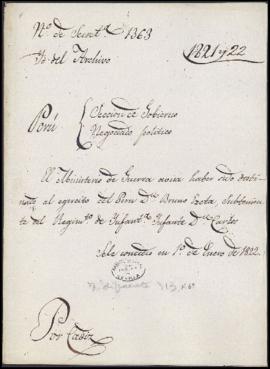 Nº de Secretª 1363
Yd del Archivo
1821 y 22
Perú { Seccion de Gobierno
Negociado politico
El Ministerio de Guerra avisa haber sido destinado
al egercito del Peru Dn Bruno
Subtenien
te del Regimto de Infantª Infante Dn Carlos
Se le concedio en 1º de Enero de 1822.
Por Cadiz